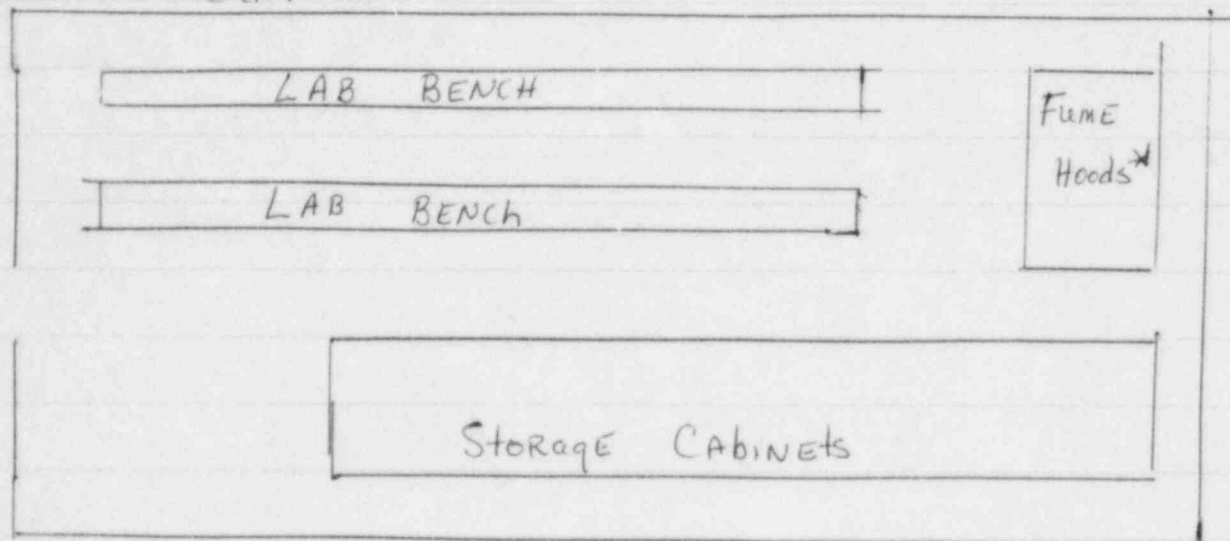 LAB BENCH
LAB BENCh
FumE
Hoods*
StoRagE CAbiNEts